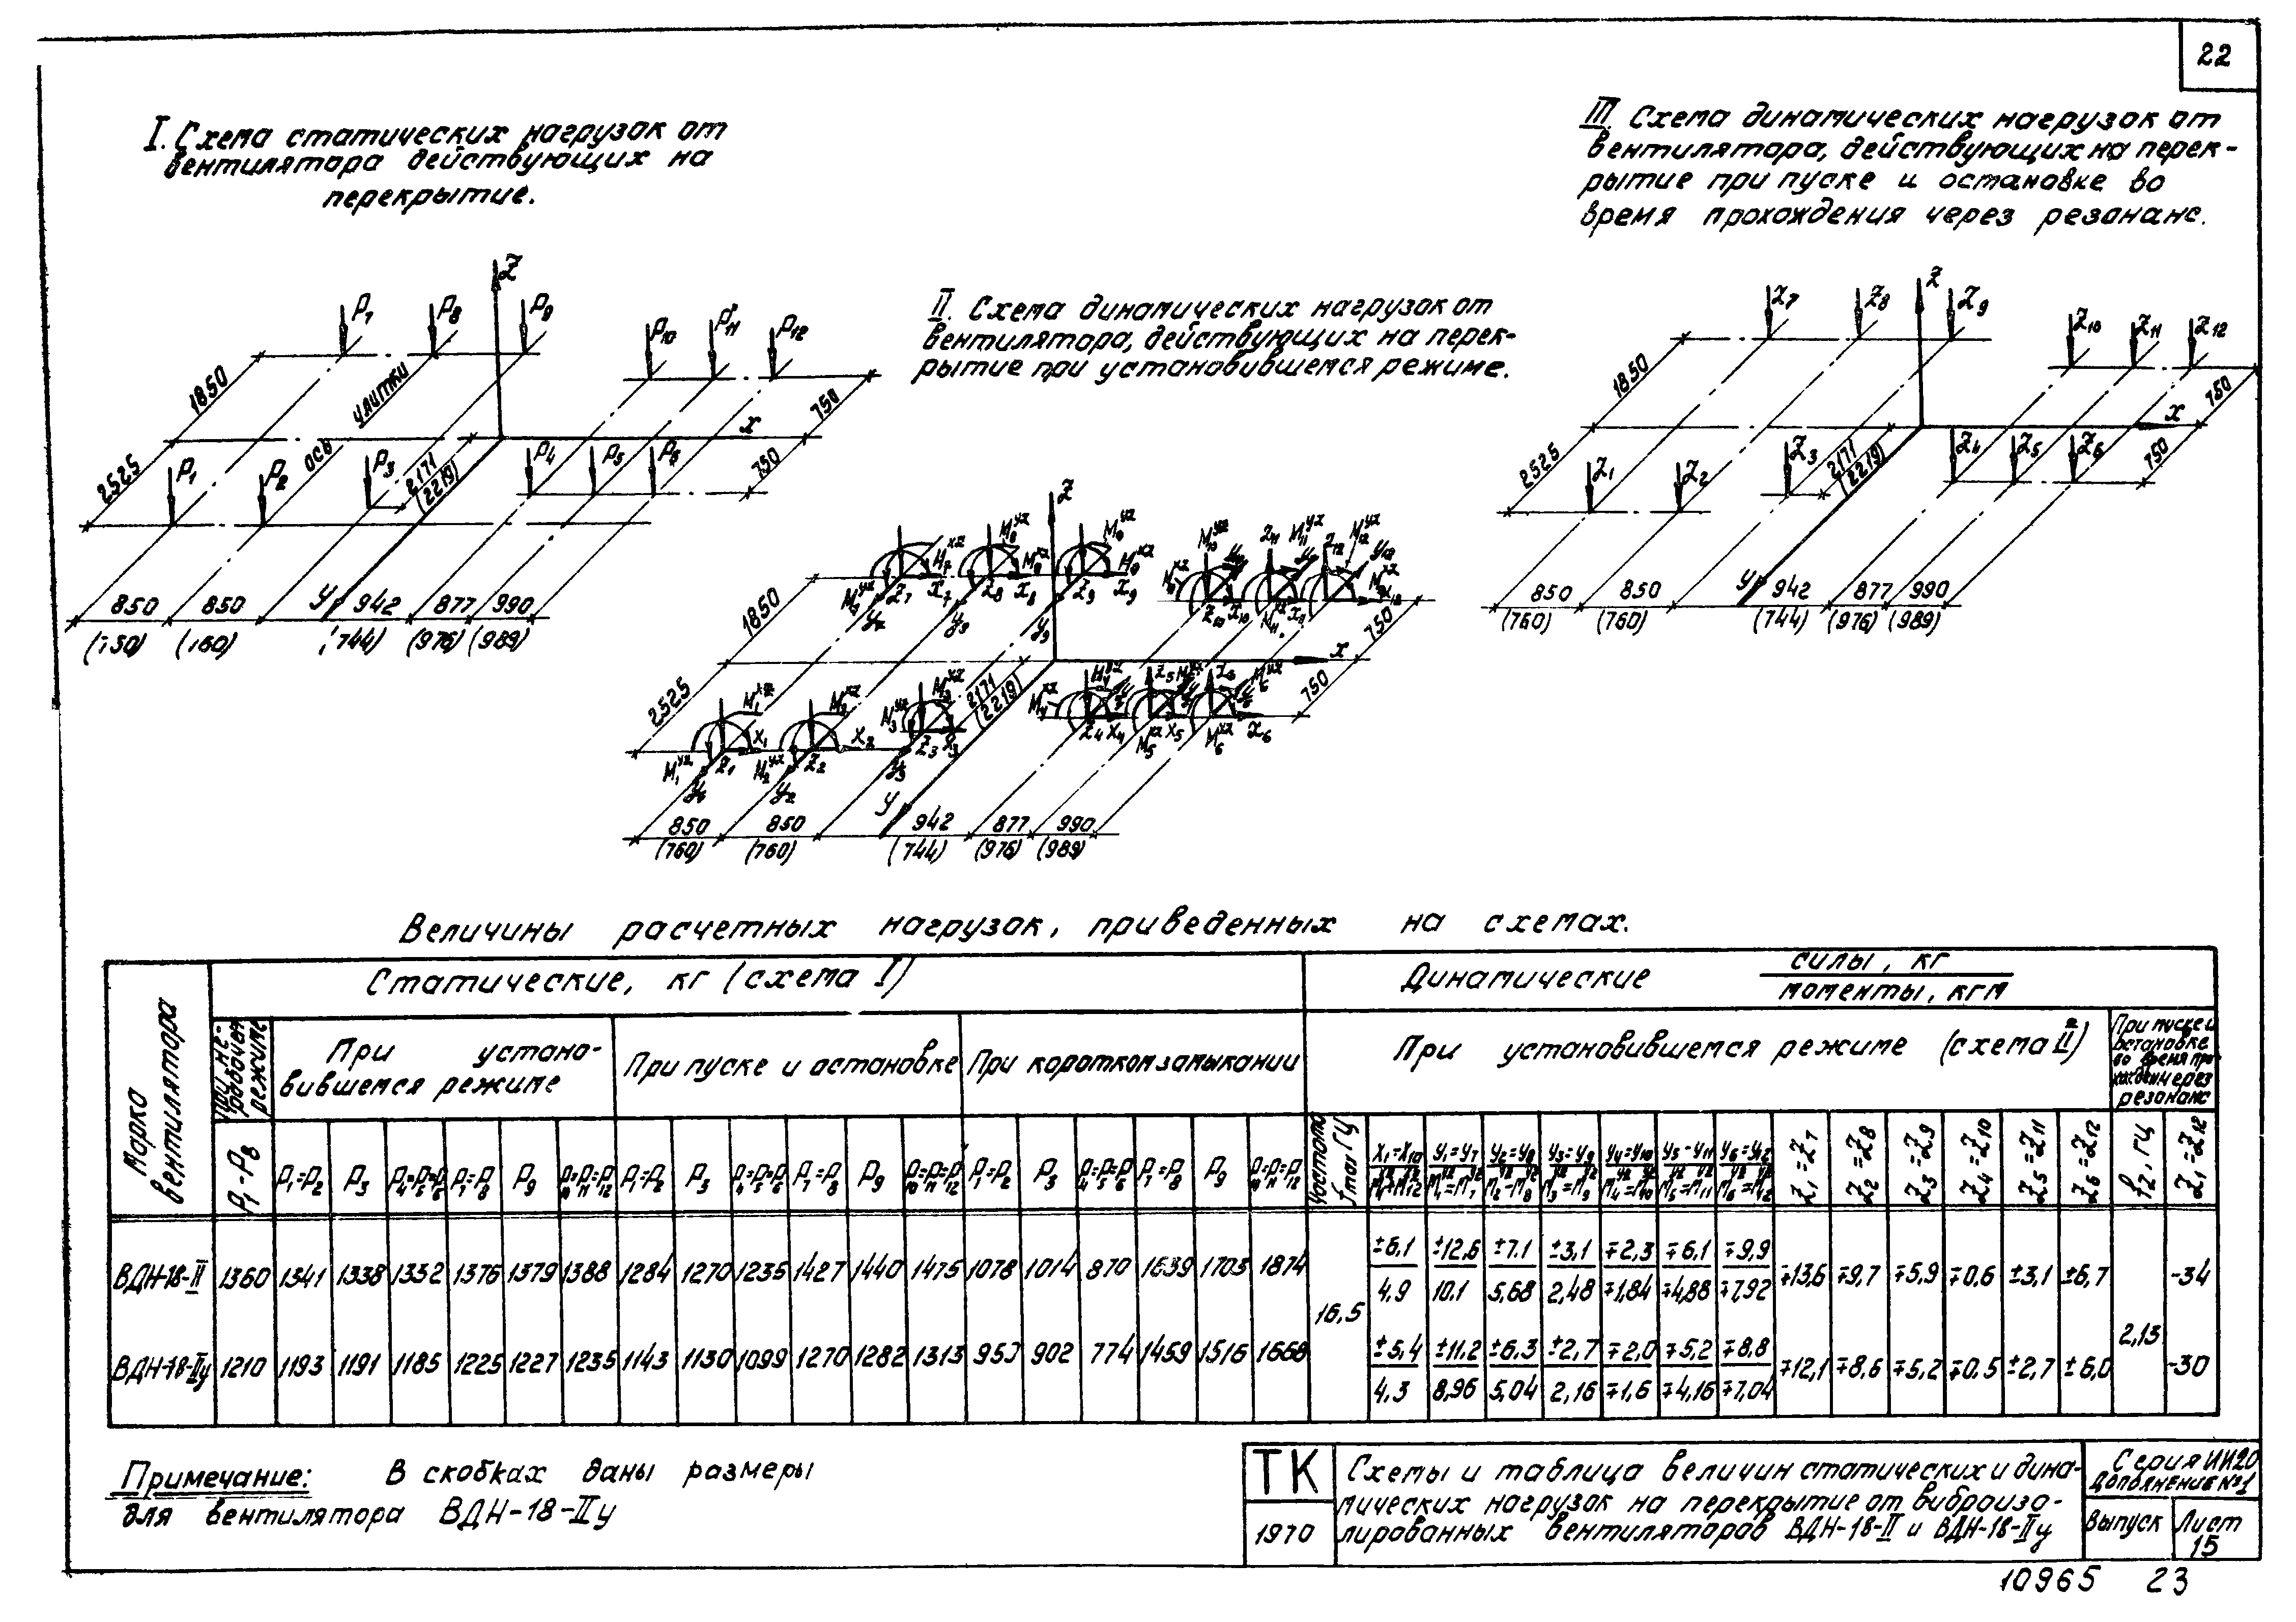 22
I. Схема статических нагрузок от
вентилятора действующих на
перекрытие.
II. Схема динамических нагрузок от
вентилятора, действующих на перек-
рытие при установившемся режиме.
III. Схема динамических нагрузок от
вентилятора, действующих на перек-
рытие при пуске и остановке во
время прохождения через резонанс.
Z
P7 P8 P9 P10 P11 P12
1850
ось улитки
x
750
2525
P1 P2 P3 P4 P5 P6
2171
(2219)
750
850 850 y 942 877 990
(744) (976) (989)
Z
1850
x
750
2525
2171
(2219)
750
y
850 850 942 877 990
(760) (760) (744) (976) (989)
Z
Z7 Z8 Z9 Z10 Z11 Z12
1850
x
750
2525
Z1 Z2 Z3 Z4 Z5 Z6
2171
(2219)
750
850 850 y 942 877 990
(760) (760) (744) (976) (989)
Величины расчетных нагрузок, приведенных на схемах.
Марка вентилятора
Статические, кг (схема I)
Динамические силы, кг / моменты, кгм
При не-
рабочем
режиме
При устано-
вившемся режиме
При пуске и остановке
При коротком замыкании
При установившемся режиме (схема II)
При пуске и
остановке
во время про-
хожден через
резонанс
P1-P8 P1=P2 P3 P4=P5=P6 P7=P8 P9 P10=P11=P12 P1=P2 P3 P4=P5=P6 P7=P8 P9 P10=P11=P12 P1=P2 P3 P4=P5=P6 P7=P8 P9 P10=P11=P12 Частота fmax ГЦ X1=X10 y1=y7 y2=y8 y3=y9 y4=y10 y5=y11 y6=y12 Z1=Z7 Z2=Z8 Z3=Z9 Z4=Z10 Z5=Z11 Z6=Z12 f2, ГЦ Z1=Z12
ВДН-18-II 1360 1341 1338 1332 1376 1379 1388 1284 1270 1235 1427 1440 1475 1078 1014 870 1639 1703 1874 16,5 ±6,1 ±12,6 ±7,1 ±3,1 ∓2,3 ∓6,1 ∓9,9 ∓13,6 ∓9,7 ∓5,9 ∓0,6 ±3,1 ±6,7 2,13 -34
4,9 10,1 5,68 2,48 ∓1,84 ∓4,88 ∓7,92
ВДН-18-IIу 1210 1193 1191 1185 1225 1227 1235 1143 1130 1099 1270 1282 1313 902 774 1459 1516 1668 ±5,4 ±11,2 ±6,3 ±2,7 ∓2,0 ∓5,2 ∓8,8 ∓12,1 ∓8,6 ∓5,2 ∓0,5 ±2,7 ±6,0 -30
4,3 8,96 5,04 2,16 ∓1,6 ∓4,16 ∓7,04
Примечание: В скобках даны размеры
для вентилятора ВДН-18-IIу
ТК
1970
Схемы и таблица величин статических и дина-
мических нагрузок на перекрытие от виброизо-
лированных вентиляторов ВДН-18-II и ВДН-18-IIу
Серия ИИ20
Дополнение №1
Выпуск
Лист
15
10965 23